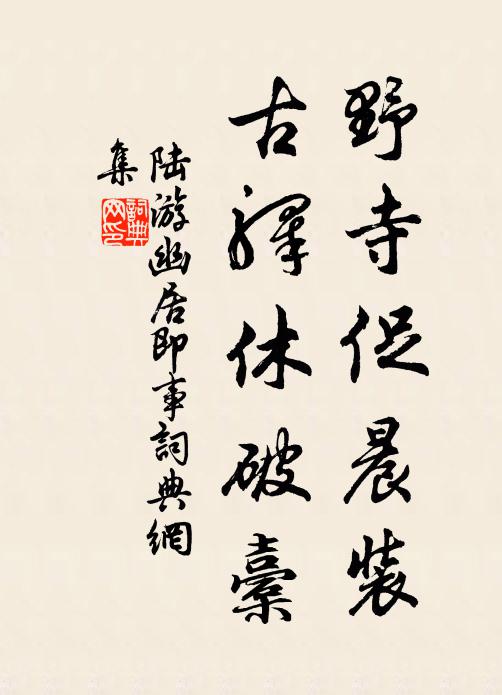 野寺促晨裝
古驛休破橐
陆游幽居即事詞典網
集
詞典网印